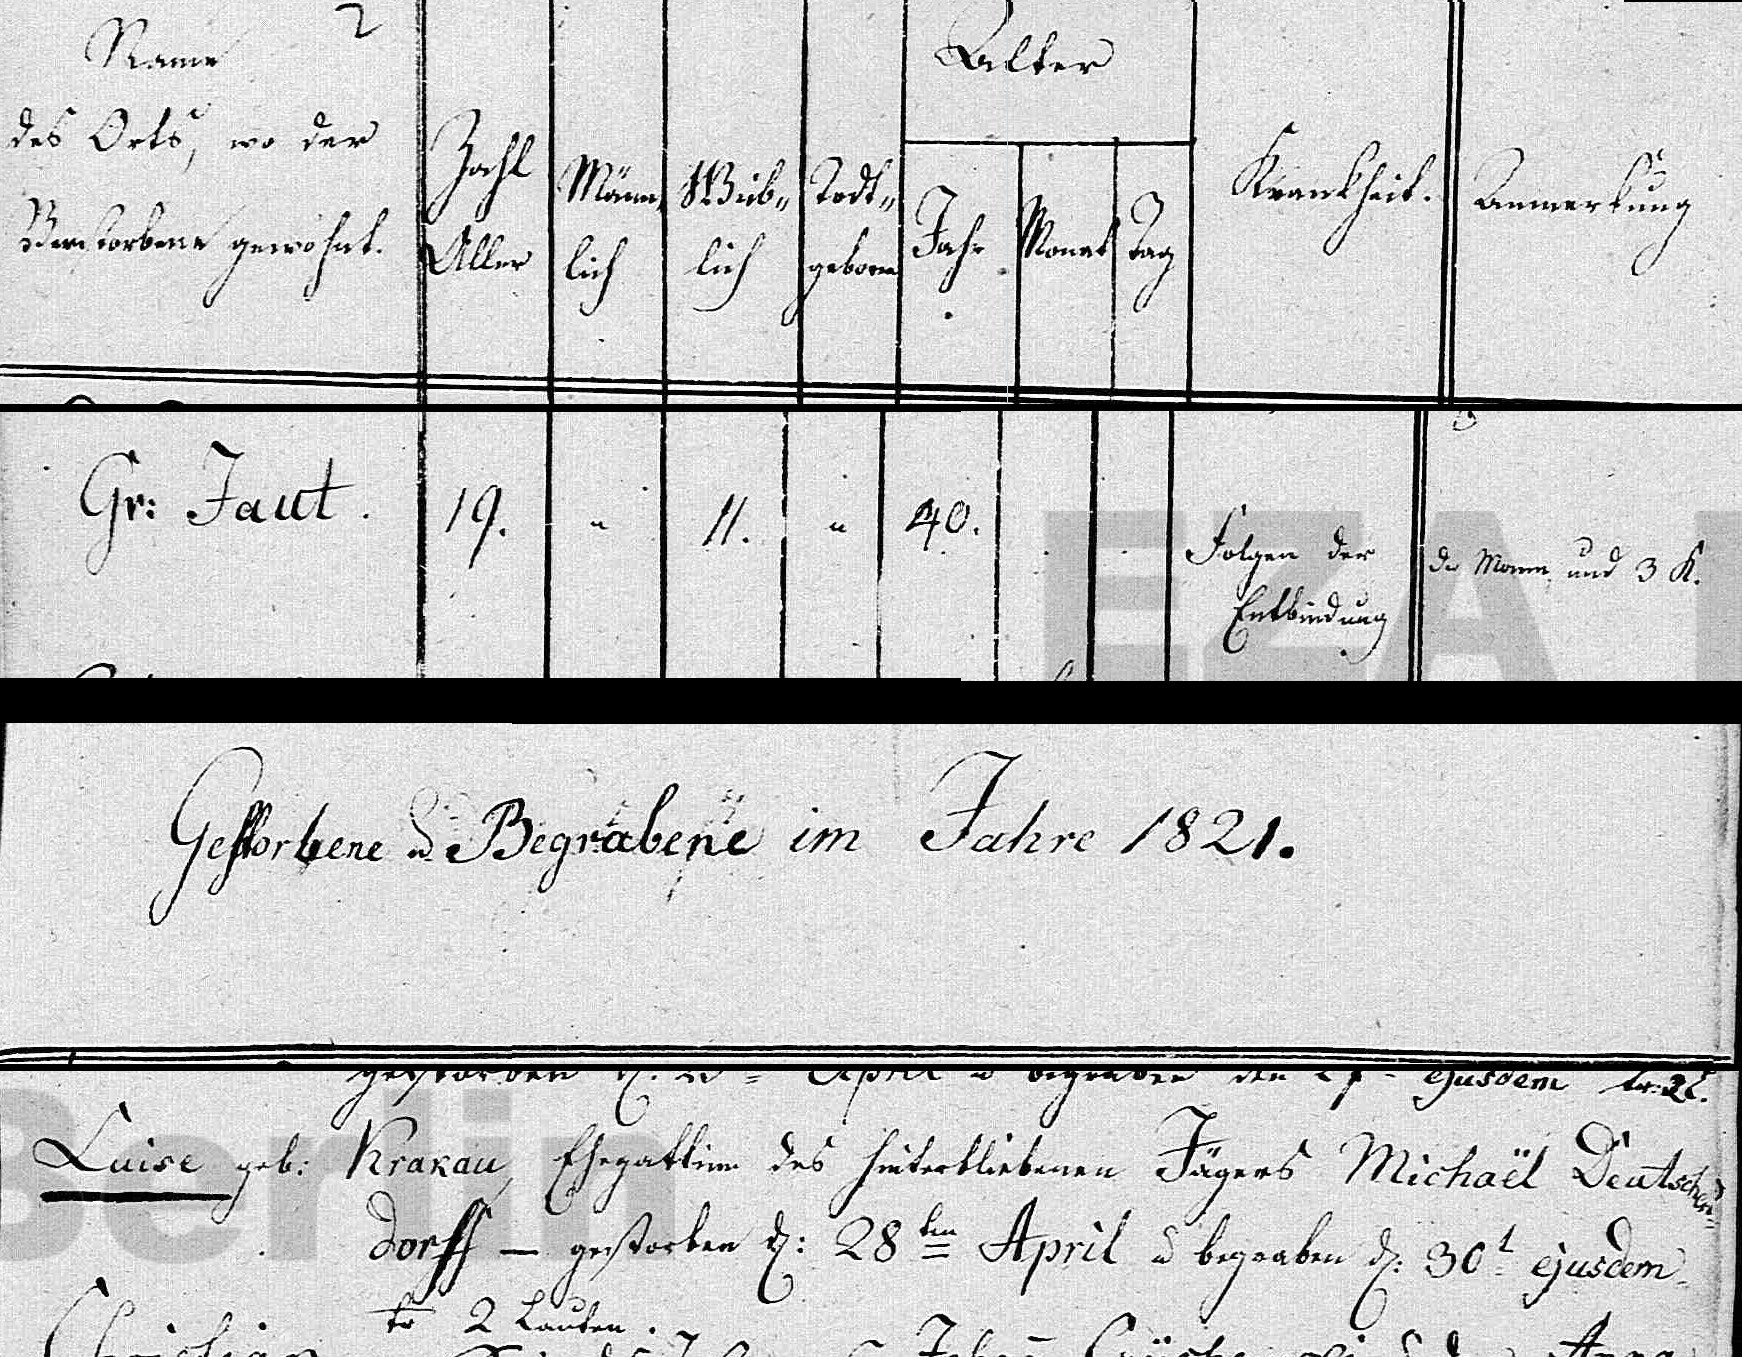 Name
des Orts, wo der
Verstorbene gewohnt.
Zahl
Aller
Männ„
lich
Weib„
lich
Todt„
geboren
Alter
Jahr
Monat
Tag
Krankheit.
Anmerkung
Gr: Jaut.
19.
"
11.
"
40.
Folgen der
Entbindung
der Mann und 3 K.
EZA
Gestorbene u Begrabene im Jahre 1821.
gestorben d. April u begraben den ejusdem
Berlin
Luise geb: Krakau, Ehegattinn des hinterbliebenen Jägers Michaël Deutschen=
dorff — gestorben d: 28ten April u begraben d: 30t ejusdem
tr 2 Lauten.
Christian